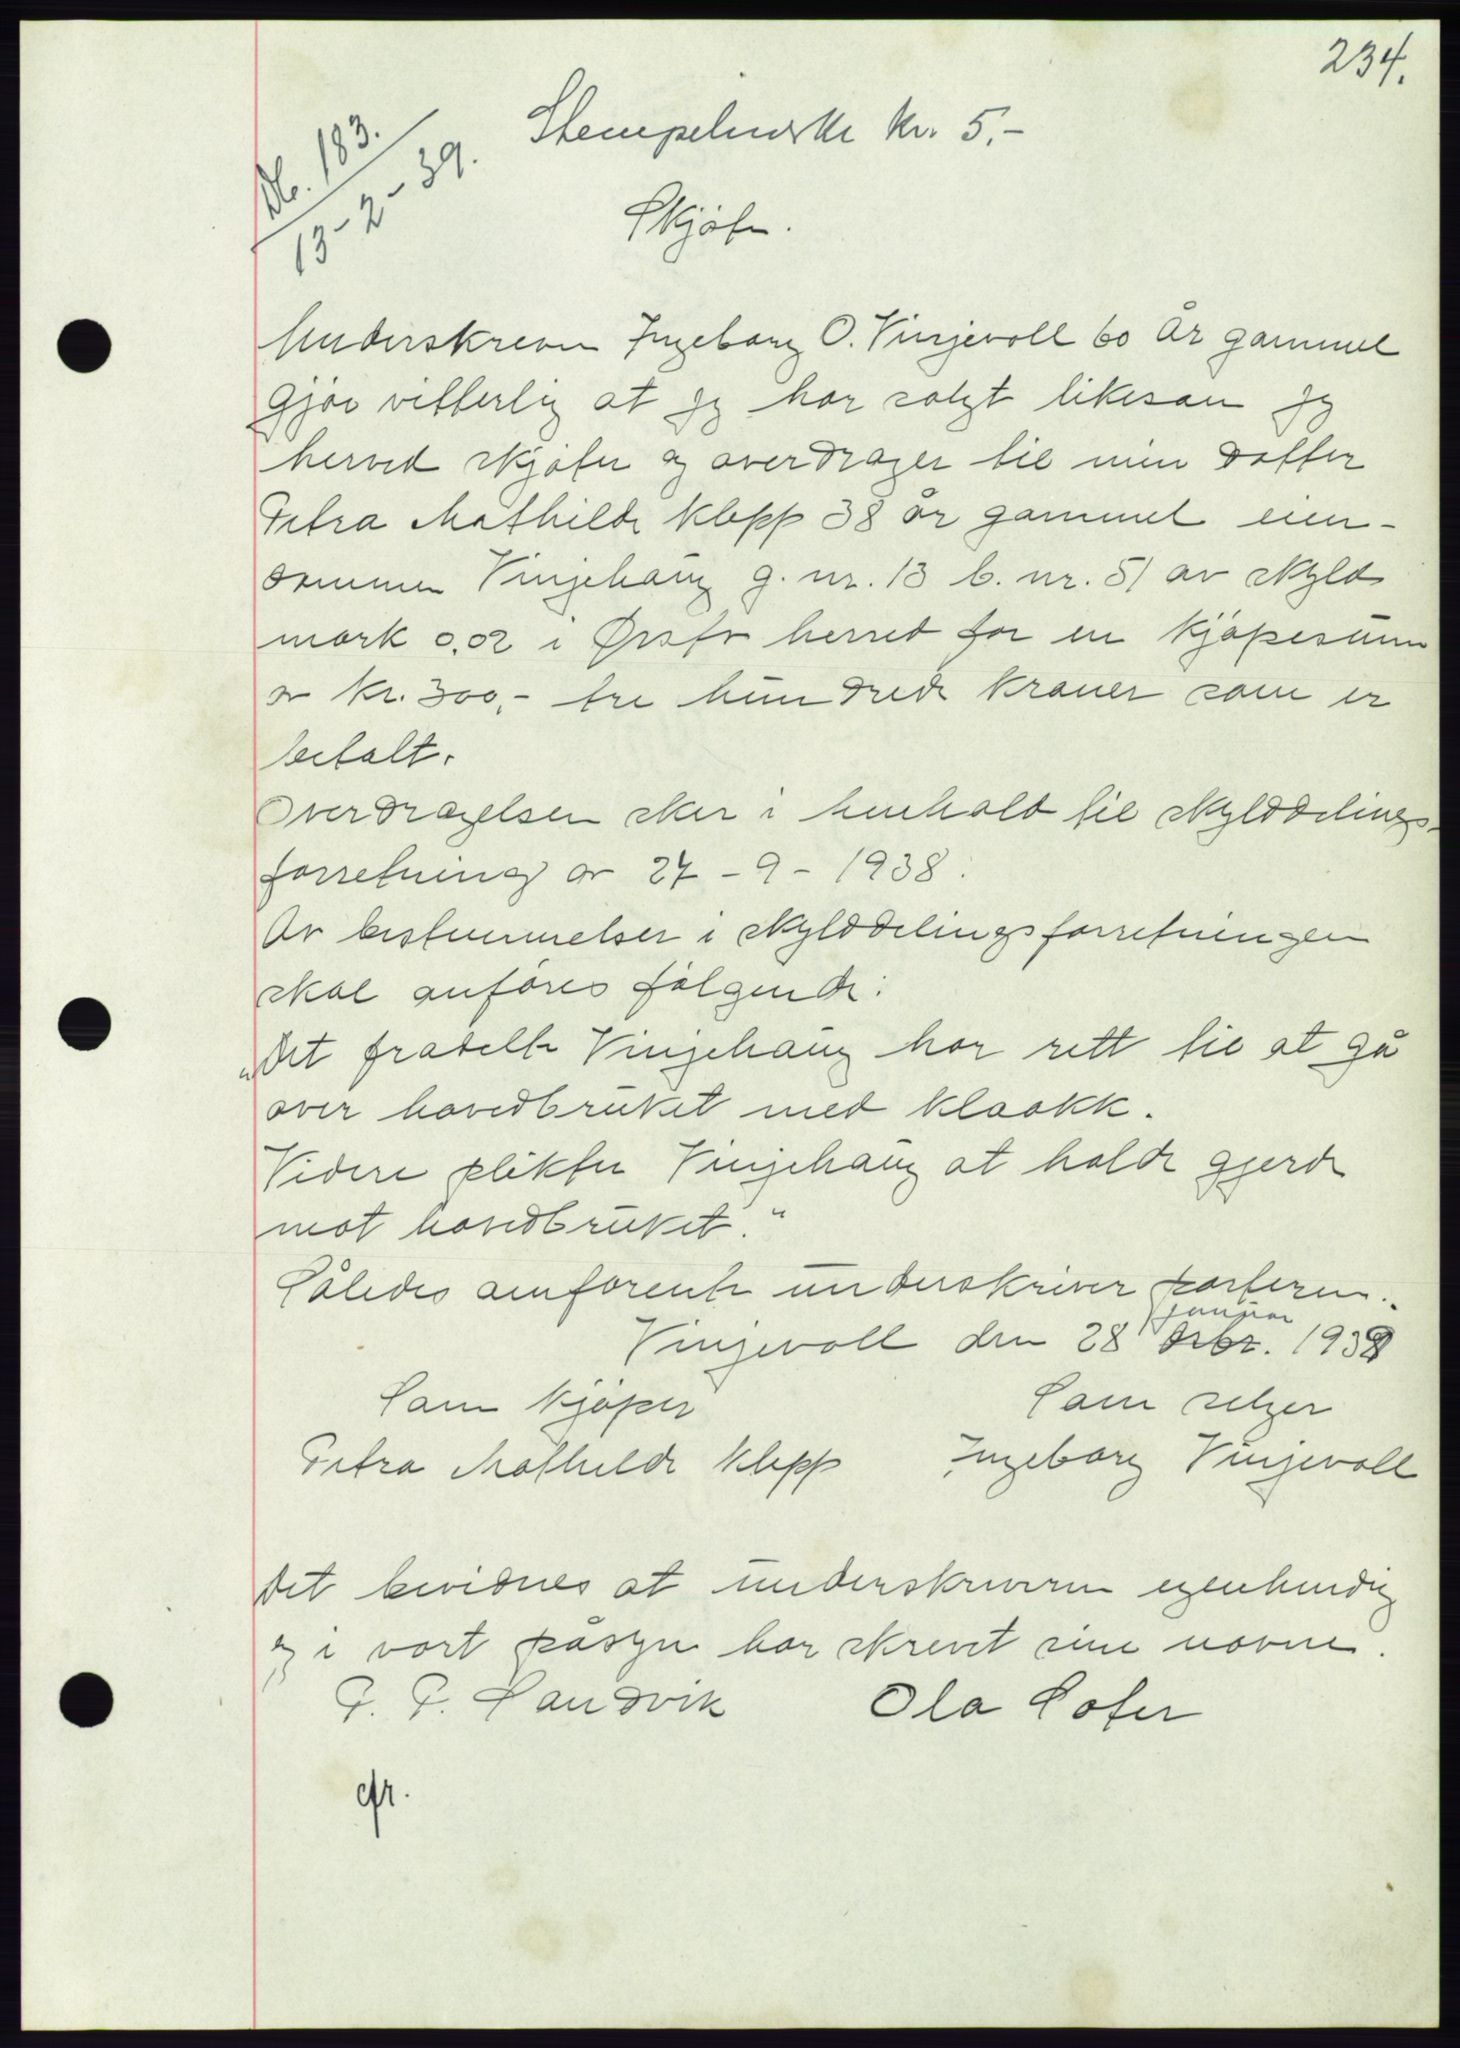 234.
Db. 183.
13-2-39.
Stempelmerke kr. 5.-
Skjøte.
Underskreven Ingeborg O. Vinjevoll 60 år gammel
gjør vitterlig at jeg har solgt likesom jeg
herved skjøter og overdrager til min datter
Petra Mathilde Klepp 38 år gammel eien-
dommen Vinjehaug g. nr. 13 b. nr. 51 av skyld
mark 0,02 i Ørsta herred for en kjøpesum
av kr. 300,- tre hundrede kroner som er
betalt.
Overdragelsen sker i henhold til skylddelings-
forretning av 27-9-1938.
Av bestemmelser i skylddelingsforretningen
skal anføres følgende:
"Det fradelte Vinjehaug har rett til at gå
over hovedbruket med kloakk.
Videre plikter Vinjehaug at holde gjerde
mot hovedbruket."
Således omforente underskriver partene.
januar
Vinjevoll den 28 desbr. 1939
Som kjøper Som selger
Petra Mathilde Klepp Ingeborg Vinjevoll
Det bevidnes at underskriverne egenhendig
og i vort påsyn har skrevet sine navne.
P. P. Sandvik Ola Sæter
cfr.